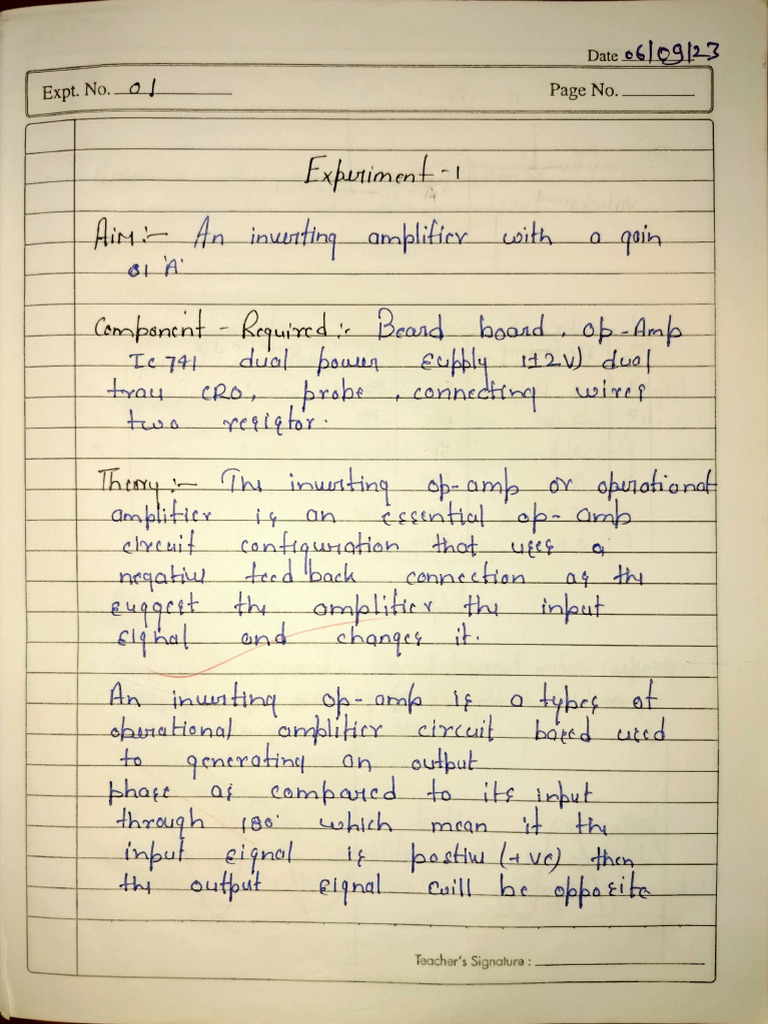 Date 06/09/23
Expt. No. 01
Page No.
Experiment - 1
Aim :- An inverting amplifier with a gain
of 'A'
Component - Required :- Beard board, op-Amp
Ic 741 dual power supply (±12V) dual
tray CRO, probe, connecting wires
two resistor.
Theory :- The inverting op-amp or operational
amplifier is an essential op-amp
circuit configuration that uses a
negative feed back connection as the
suggest the amplifier the input
signal and changes it.
An inverting op-amp is a types of
operational amplifier circuit based used
to generating an output
phase as compared to its input
through 180° which mean if the
input signal is postive (+ve) then
the output signal will be opposite
Teacher's Signature :